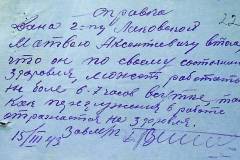 справка
Дана г-ну Лисовской
Матвею Аксентьевичу в том
что он по своему состоянию
здоровия может работать
не боле 6-7 часов в сутке, так
как переутомления в работе
отражается на здоровя.
15/III 43 Завмед